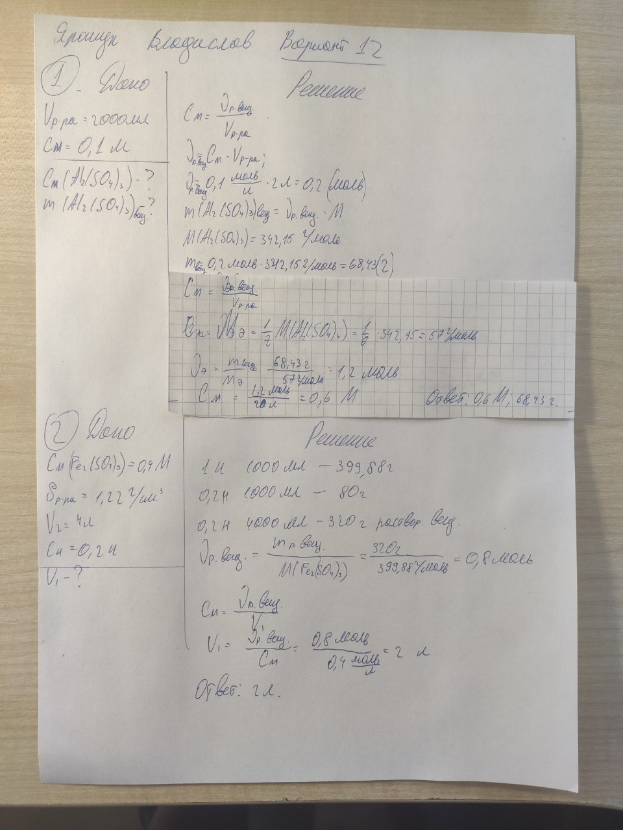 Ярощук Владислав Вариант 12
1. Дано
Vр-ра = 2000 мл
См = 0,1 М
См (Al₂(SO₄)₃) - ?
m (Al₂(SO₄)₃)вещ ?
Решение
См = νр.вещ / Vр-ра
νр.вещ = См · Vр-ра;
νр.вещ = 0,1 моль/л · 2 л = 0,2 (моль)
m (Al₂(SO₄)₃)вещ = νр.вещ · M
M(Al₂(SO₄)₃) = 342,15 г/моль
mвещ = 0,2 моль · 342,15 г/моль = 68,43 (г)
См = νр.вещ / Vр-ра
Mэ = 1/z M(Al₂(SO₄)₃) = 1/6 · 342,15 = 57 г/моль
νэ = mвещ / Mэ = 68,43 г / 57 г/моль = 1,2 моль
См = 1,2 моль / 2 л = 0,6 М Ответ: 0,6 М; 68,43 г.
2 Дано
См (Fe₂(SO₄)₃) = 0,4 М
ρр-ра = 1,22 г/см³
V₂ = 4 л
Сн = 0,2 н
V₁ - ?
Решение
1 н 1000 мл — 399,88 г
0,2 н 1000 мл — 80 г
0,2 н 4000 мл — 320 г раствор. вещ.
νр.вещ. = mр.вещ. / M(Fe₂(SO₄)₃) = 320 г / 399,88 г/моль = 0,8 моль
См = νр.вещ. / V₁
V₁ = νр.вещ. / См = 0,8 моль / 0,4 моль/л = 2 л
Ответ: 2 л.